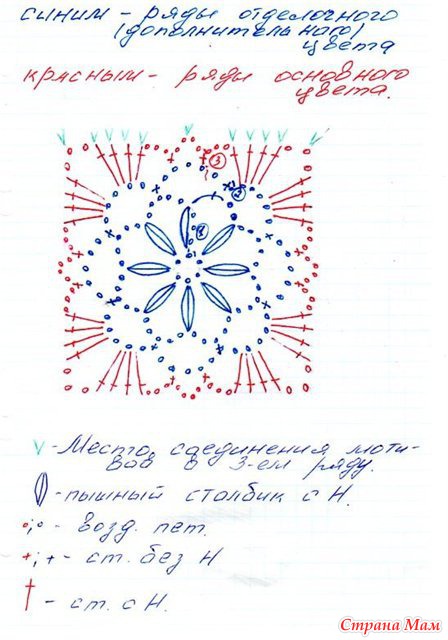 синим - ряды отделочного
(дополнительного)
цвета
красным - ряды основного
цвета.
3
2
1
V - Место соединения моти-
вов в 3-ем ряду.
- пышный столбик с Н.
- возд. пет.
- ст. без Н
- ст. с Н.
Страна Мам